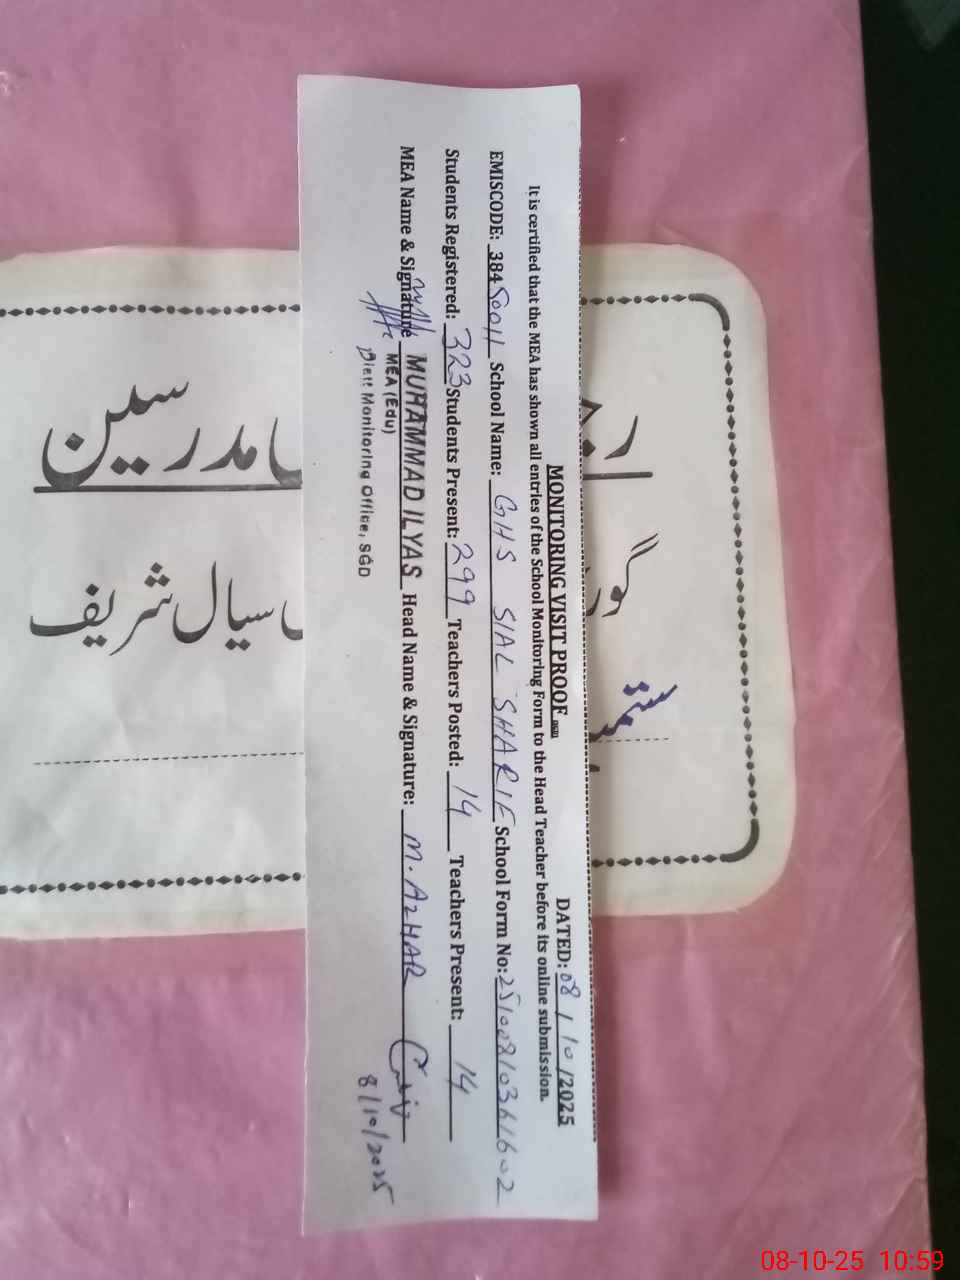 MONITORING VISIT PROOF
DATED: 08/10/2025
It is certified that the MEA has shown all entries of the School Monitoring Form to the Head Teacher before its online submission.
EMISCODE: 38450011 School Name: GHS SIAL SHARIF School Form No: 25100810361602
Students Registered: 323 Students Present: 299 Teachers Posted: 14 Teachers Present: 14
MEA Name & Signature MUHAMMAD ILYAS Head Name & Signature: M. AZHAR
MEA (Edu)
Distt Monitoring Office, SGD
8/10/2025
مدرسین
سیال شریف
08-10-25 10:59